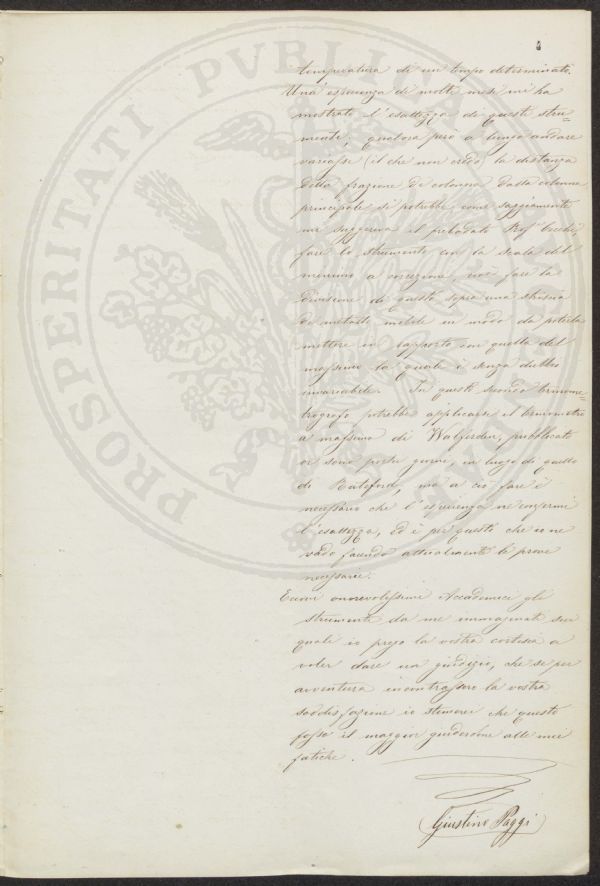 4
temperatura di un tempo determinato.
Una esperienza di molti mesi mi ha
mostrato l'esattezza di questi stru=
menti, qualora però a lungo andare
variasse (il che non credo) la distanza
della frazione di colonna dalla colonna
principale si potrebbe come saggiamente
mi suggeriva il prelodato Prof.
fare lo strumento con la scala del
minimo a correzione cioè fare la
divisione di questo sopra una striscia
di metallo mobile in modo da poterla
mettere in rapporto con quella del
massimo la quale è senza dubbio
invariabile. In questo secondo termome=
trografo potrebbe applicarsi il termometro
a massimo di Walferdin, pubblicato
or sono pochi giorni, in luogo di quello
di Ruteford, ma a ciò fare è
necessario che l'esperienza ne confermi
l'esattezza, ed è per questo che io ne
vado facendo attualmente le prove
necessarie.
Eccovi onorevolissimi Accademici gli
strumenti da me immaginati sui
quali io prego la vostra cortesia a
voler dare un giudizio, che se per
avventura incontrassero la vostra
soddisfazione io stimerei che questo
fosse il maggior guiderdone alle mie
fatiche.
Giustino Paggi
PROSPERITATI PVBLICAE